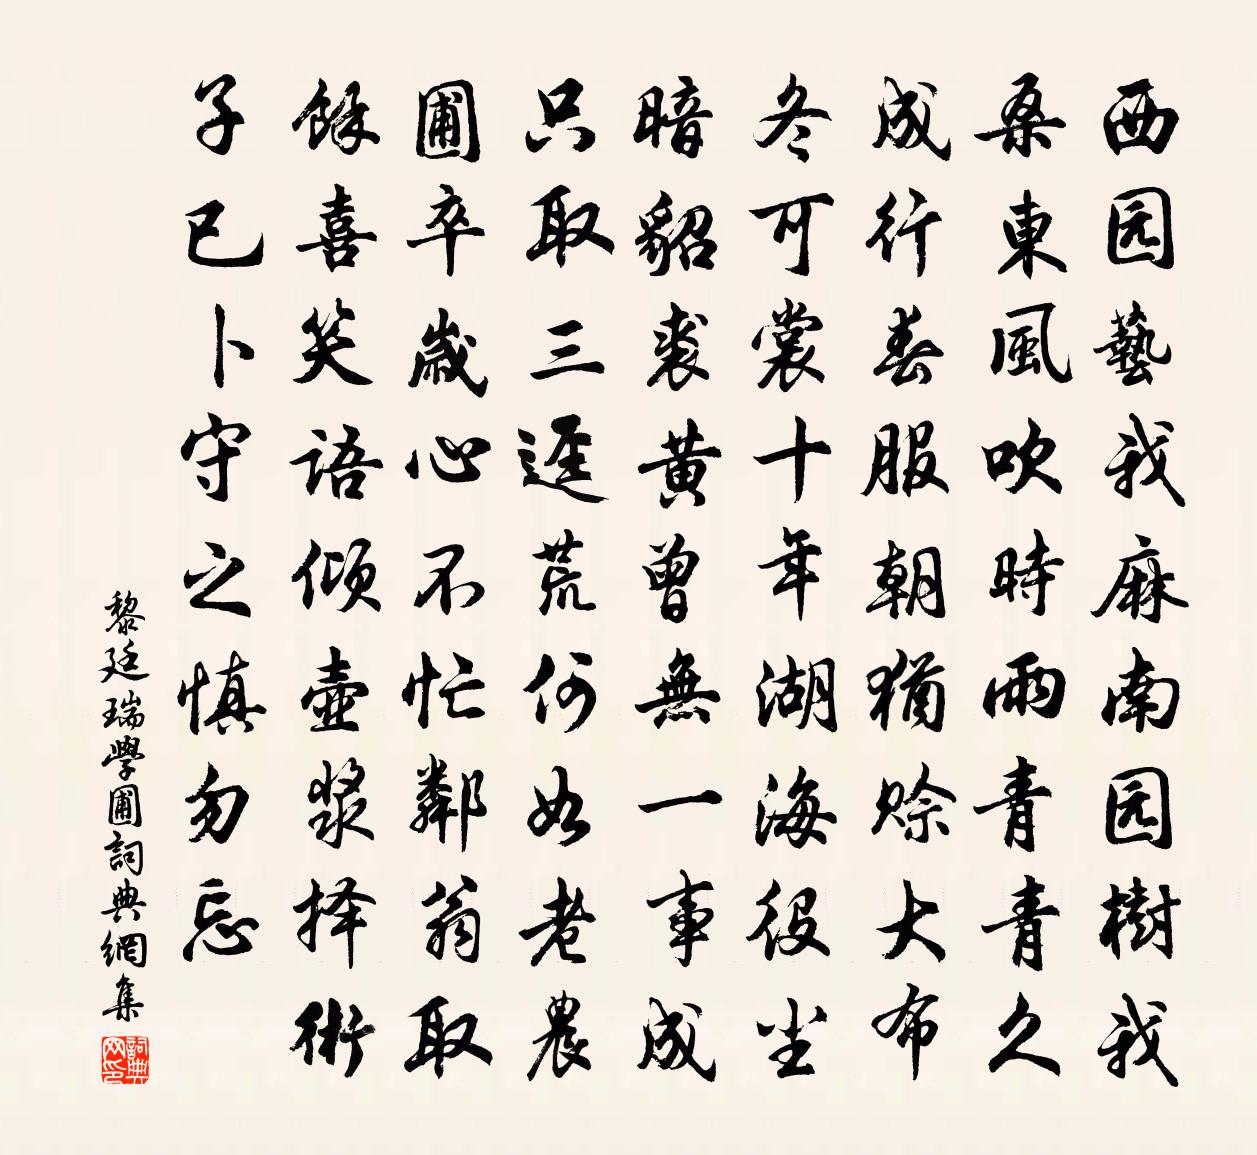 西园藝我麻南园樹我
桑東風吹時雨青青久
成行春服朝猶賒大布
冬可裳十年湖海役尘
暗貂裘黄曾無一事成
只取三逕荒何如老農
圃卒歲心不忙鄰翁取
餘喜笑語倾壺漿择術
子已卜守之慎勿忘
黎廷瑞學圃詞典網集
詞典网印